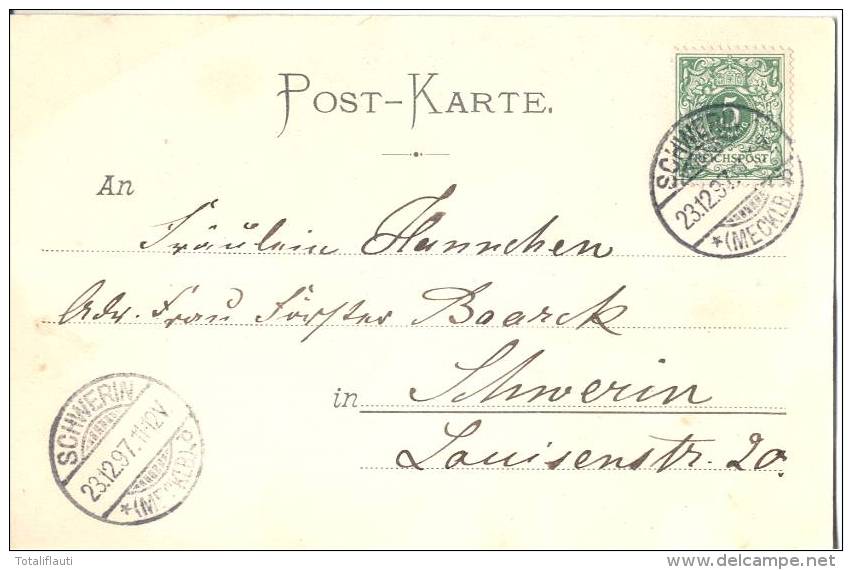 POST-KARTE.
5
REICHSPOST
SCHWERIN
23.12.97.
*(MECKLB.)
An
Fräulein Hannchen
Adr. Frau Förster Baarck
in Schwerin
Louisenstr. 20.
SCHWERIN
23.12.97. 11-12V.
*(MECKLB.)
Totaliflauti
delcampe.net